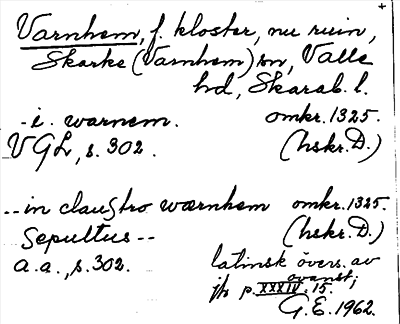 Varnhem, f. kloster, nu ruin,
Skarke (Varnhem) sn, Valle
hd, Skarab. l.
- i. warnem. omkr. 1325.
VGL, s. 302. (hskr. D.)
-- in claustro wærnhem omkr. 1325.
sepultus -- (hskr. D.)
a.a., s. 302. latinsk övers. av
ovanst;
jfr p. XXXIV. 15.
G.E. 1962.